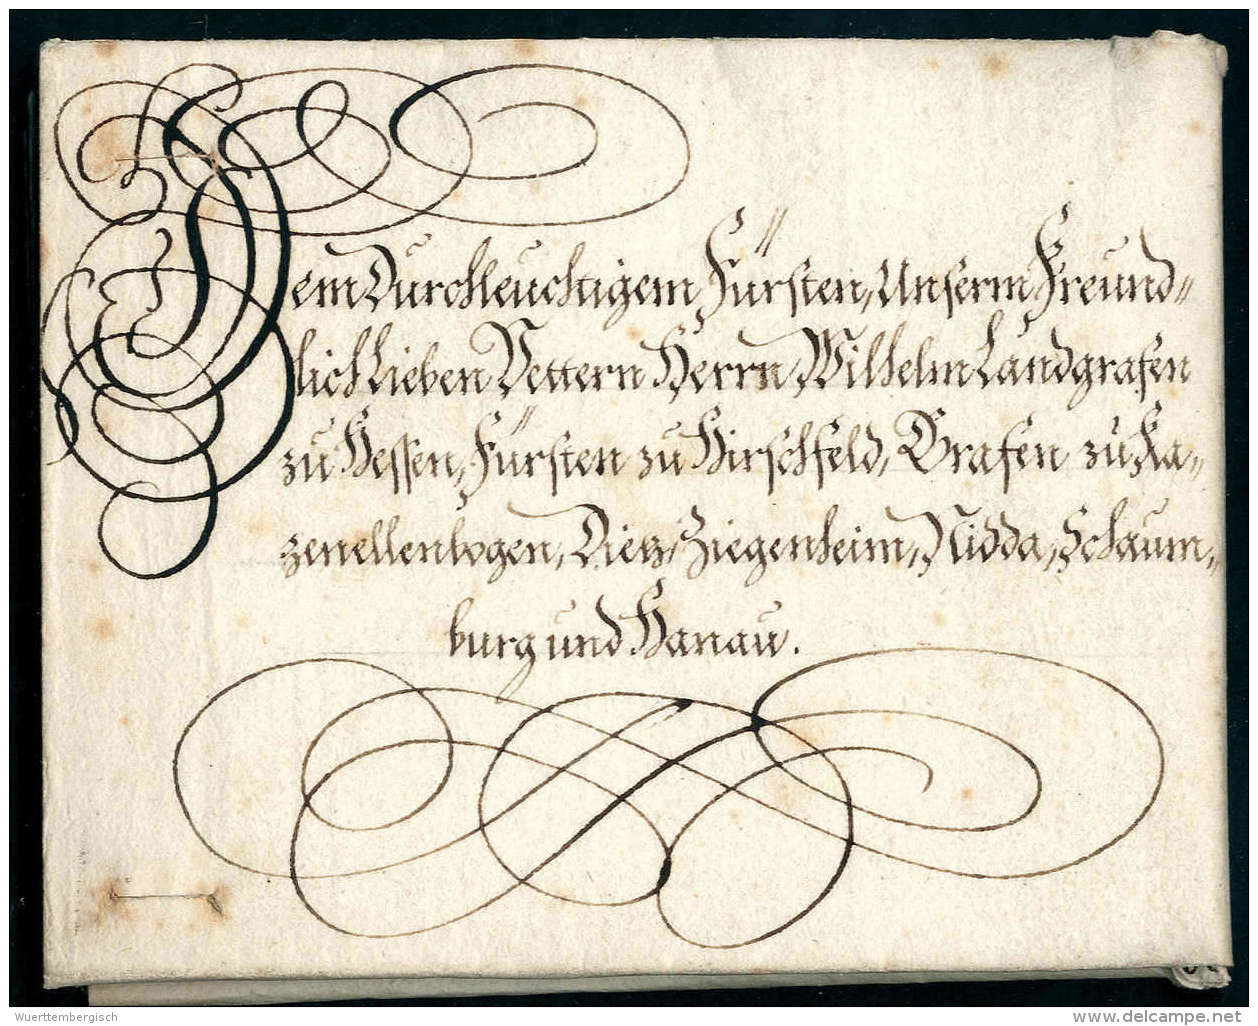 Dem Durchleuchtigem Fürsten, Unserm Freund-
lich lieben Vettern Herrn Wilhelm Landgrafen
zu Hessen, Fürsten zu Hirschfeld, Grafen zu Ka-
zenellenbogen, Dietz, Ziegenheim, Nidda, Schaum-
burg und Hanau.
Wuerttembergisch
delcampe.net